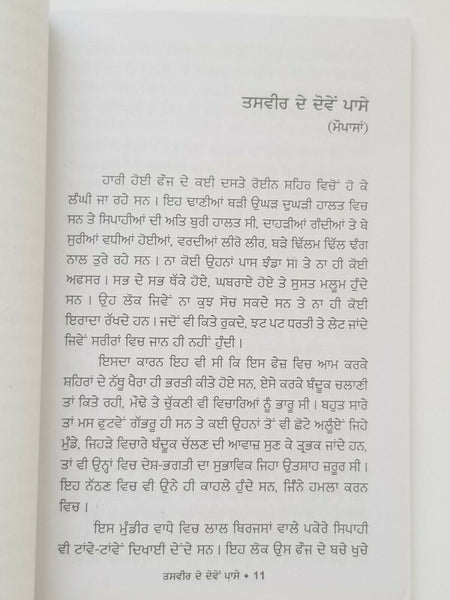 ਤਸਵੀਰ ਦੇ ਦੋਵੇਂ ਪਾਸੇ
(ਮੌਪਾਸਾਂ)
ਹਾਰੀ ਹੋਈ ਫੌਜ ਦੇ ਕਈ ਦਸਤੇ ਰੋਈਨ ਸ਼ਹਿਰ ਵਿਚੋਂ ਹੋ ਕੇ
ਲੰਘੀ ਜਾ ਰਹੇ ਸਨ । ਇਹ ਢਾਣੀਆਂ ਬੜੀ ਉਘੜ ਦੁਘੜੀ ਹਾਲਤ ਵਿਚ
ਸਨ ਤੇ ਸਿਪਾਹੀਆਂ ਦੀ ਅਤਿ ਬੁਰੀ ਹਾਲਤ ਸੀ, ਦਾਹੜੀਆਂ ਗੰਦੀਆਂ ਤੇ ਬੇ
ਸੁਰੀਆਂ ਵਧੀਆਂ ਹੋਈਆਂ, ਵਰਦੀਆਂ ਲੀਰੋ ਲੀਰ, ਬੜੇ ਢਿੱਲਮ ਢਿੱਲ ਢੰਗ
ਨਾਲ ਤੁਰੇ ਰਹੇ ਸਨ । ਨਾ ਕੋਈ ਉਹਨਾਂ ਪਾਸ ਝੰਡਾ ਸੀ ਤੇ ਨਾ ਹੀ ਕੋਈ
ਅਫਸਰ । ਸਭ ਦੇ ਸਭ ਥੱਕੇ ਹੋਏ, ਘਬਰਾਏ ਹੋਏ ਤੇ ਸੁਸਤ ਮਲੂਮ ਹੁੰਦੇ
ਸਨ । ਉਹ ਲੋਕ ਜਿਵੇਂ ਨਾ ਕੁਝ ਸੋਚ ਸਕਦੇ ਸਨ ਤੇ ਨਾ ਹੀ ਕੋਈ
ਇਰਾਦਾ ਰੱਖਦੇ ਹਨ । ਜਦੋਂ ਵੀ ਕਿਤੇ ਰੁਕਦੇ, ਝਟ ਪਟ ਧਰਤੀ ਤੇ ਲੇਟ ਜਾਂਦੇ
ਜਿਵੇਂ ਸਰੀਰਾਂ ਵਿਚ ਜਾਨ ਹੀ ਨਹੀਂ ਹੁੰਦੀ ।
ਇਸਦਾ ਕਾਰਨ ਇਹ ਵੀ ਸੀ ਕਿ ਇਸ ਫੇਜ਼ ਵਿਚ ਆਮ ਕਰਕੇ
ਸ਼ਹਿਰਾਂ ਦੇ ਨੱਥੂ ਖੈਰਾ ਹੀ ਭਰਤੀ ਕੀਤੇ ਹੋਏ ਸਨ, ਏਸੇ ਕਰਕੇ ਬੰਦੂਕ ਚਲਾਣੀ
ਤਾਂ ਕਿਤੇ ਰਹੀ, ਮੋਢੇ ਤੇ ਚੁੱਕਣੀ ਵੀ ਵਿਚਾਰਿਆਂ ਨੂੰ ਭਾਰੂ ਸੀ । ਬਹੁਤ ਸਾਰੇ
ਤਾਂ ਮਸ ਫੁਟਵੇਂ ਗੱਭਰੂ ਹੀ ਸਨ ਤੇ ਕਈ ਉਹਨਾਂ ਤੋਂ ਵੀ ਛੋਟੇ ਅਲੂੰਏਂ ਜਿਹੇ
ਮੁੰਡੇ, ਜਿਹੜੇ ਵਿਚਾਰੇ ਬੰਦੂਕ ਚੱਲਣ ਦੀ ਆਵਾਜ਼ ਸੁਣ ਕੇ ਤ੍ਰਭਕ ਜਾਂਦੇ ਹਨ,
ਤਾਂ ਵੀ ਉਨ੍ਹਾਂ ਵਿਚ ਦੇਸ਼-ਭਗਤੀ ਦਾ ਸੁਭਾਵਿਕ ਜਿਹਾ ਉਤਸ਼ਾਹ ਜ਼ਰੂਰ ਸੀ ।
ਇਹ ਨੱਠਣ ਵਿਚ ਵੀ ਉਨੇ ਹੀ ਕਾਹਲੇ ਹੁੰਦੇ ਸਨ, ਜਿੰਨੇ ਹਮਲਾ ਕਰਨ
ਵਿਚ ।
ਇਸ ਮੁੰਡੀਰ ਵਾਧੇ ਵਿਚ ਲਾਲ ਬਿਰਜਸਾਂ ਵਾਲੇ ਪਕੇਰੇ ਸਿਪਾਹੀ
ਵੀ ਟਾਂਵੇ-ਟਾਂਵੇਂ ਦਿਖਾਈ ਦੇਂਦੇ ਸਨ । ਇਹ ਲੋਕ ਉਸ ਫੌਜ ਦੇ ਬਚੇ ਖੁਚੇ
ਤਸਵੀਰ ਦੇ ਦੋਵੇਂ ਪਾਸੇ • 11